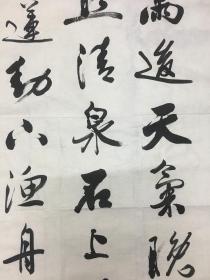 雨後天氣晚
清泉石上
蓮動下漁舟